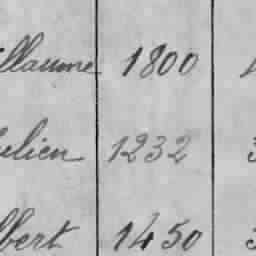 illaume 1800
ulien 1232
lbert 1450